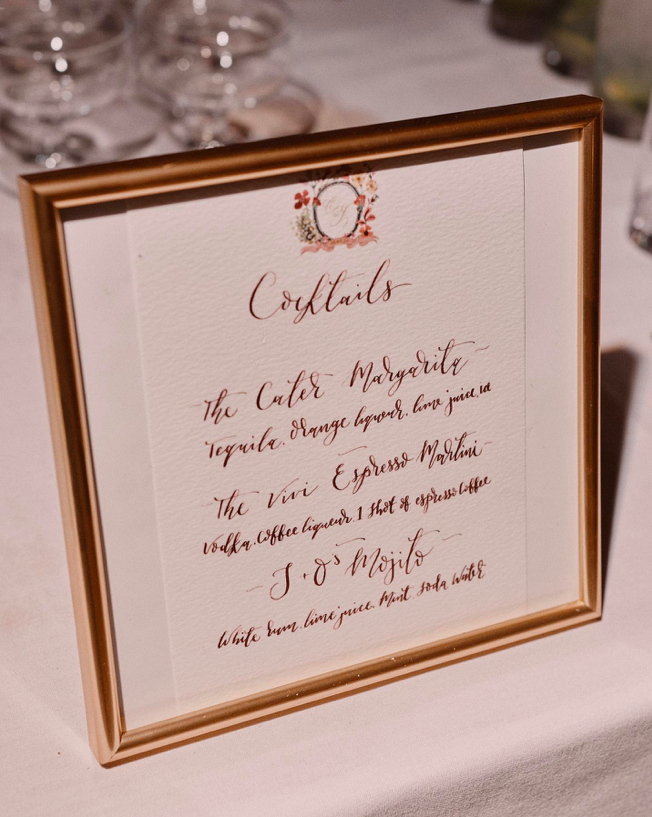 Cocktails
The Cater Margarita
Tequila, Orange liqueur, lime juice, ice
The Vivi Espresso Martini
Vodka, Coffee liqueur, 1 shot of espresso Coffee
J.O's Mojito
White rum, lime juice, Mint, Soda Water